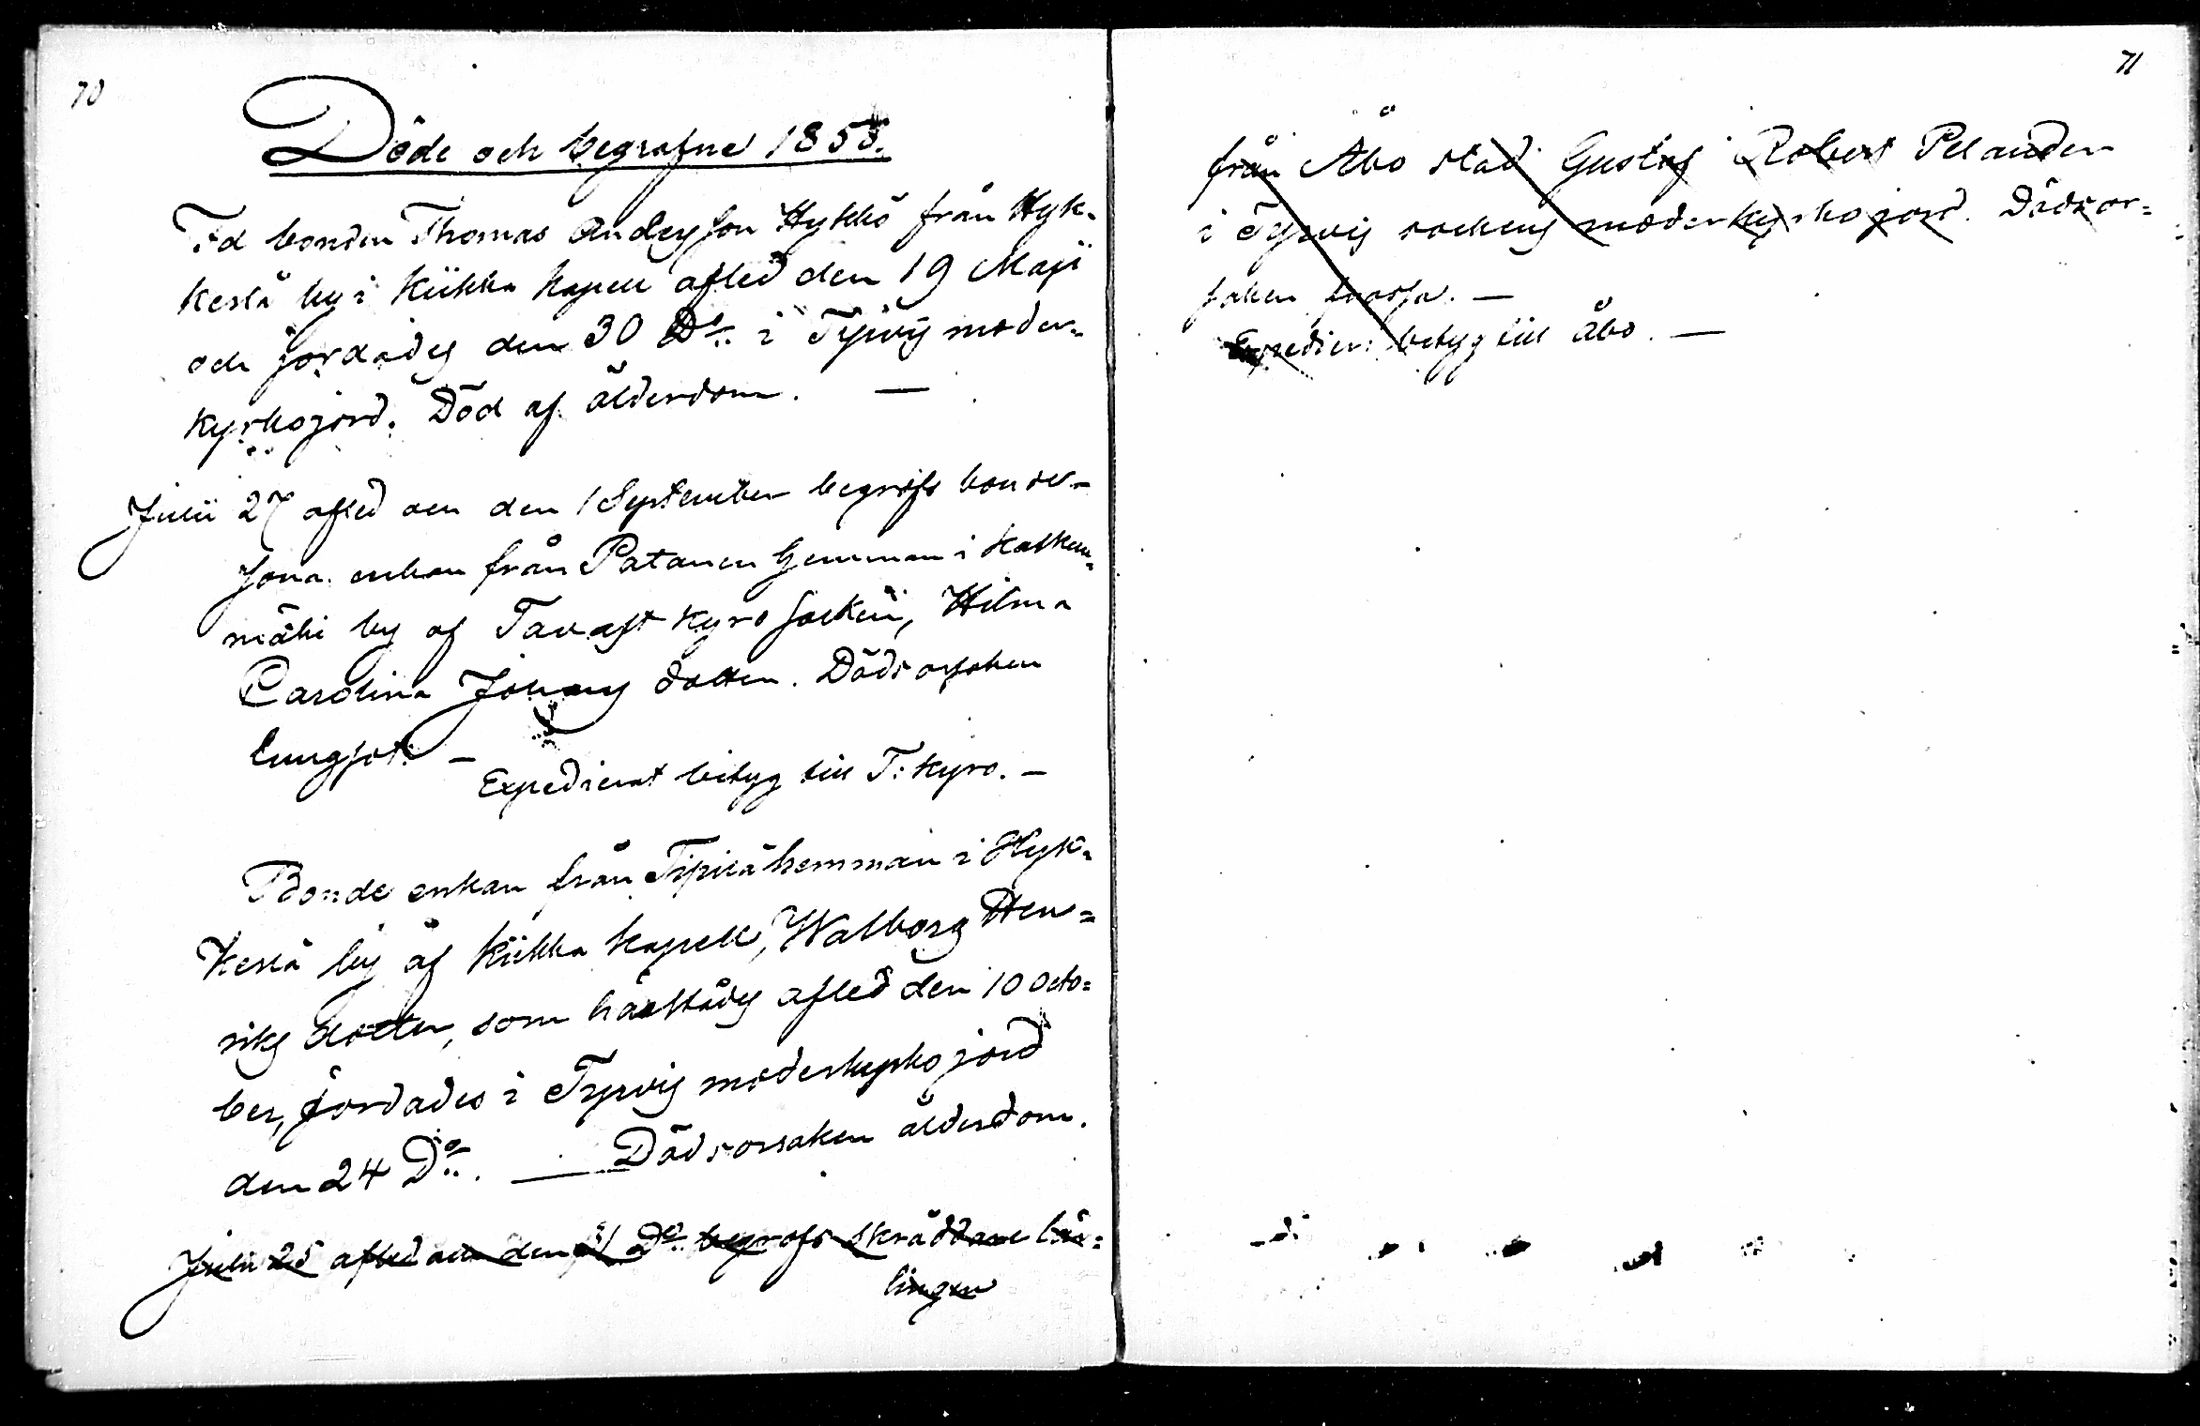 70
Döde och begrafne 1858.
F.d bonden Thomas Andersson Hykkö från Hyk-
kestä by i Kiikka kapell afled den 19 Maji
och jordades den 30 D:o i Tyrvis moder-
kyrkojord. Död af ålderdom. —
Julii 27 afled och den 1 September begrofs bonde-
enkan från Patanen hemman i
mäki by af Tavastkyro socken, Wilma
Carolina Johans dotter. Dödsorsaken
lungsot. —
Expedierat betyg till T: Kyro. —
Bonde enkan från Tipilä hemman i Hyk-
kestä by af Kiikka kapell, Walborg Hen=
riks dotter, som härstädes afled den 10 Octo=
ber, jordades i Tyrvis moderkyrko jord
den 24 D:o. — Dödsorsaken ålderdom.
Julii 25 afled och den 31 D:o begrofs skräddare lär=
lingen
71
från Åbo stad Gustaf Robert Pelander
i Tyrvis sockens moderkyrko jord. Dödsor=
saken frossa. —
Expedier: betyg till Åbo. —